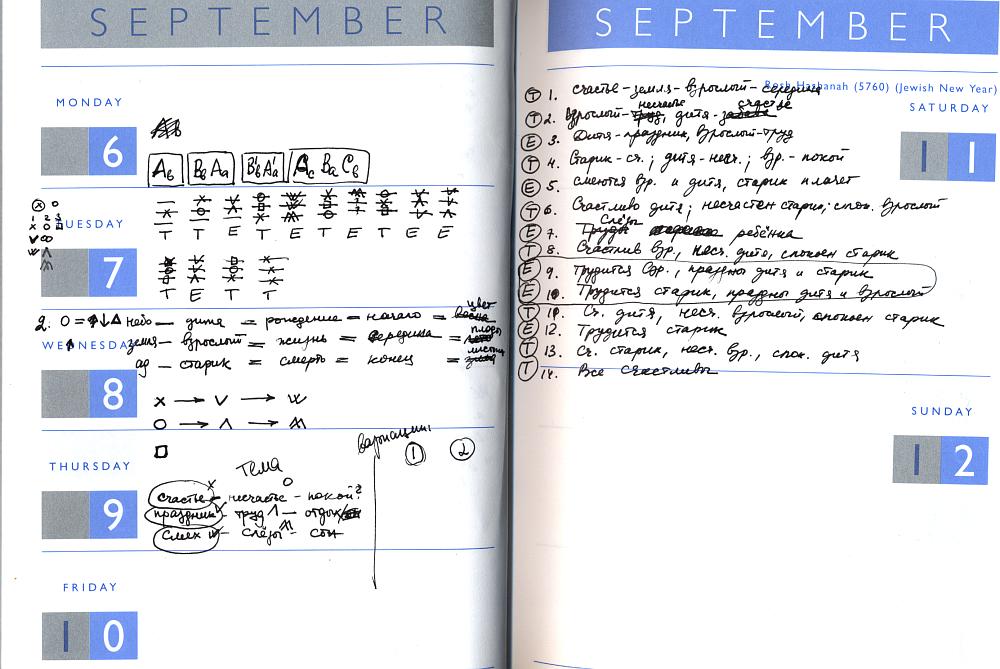 SEPTEMBER
MONDAY
6
Aв Bв Aa B'в A'a Aс Ba Cв
TUESDAY
1 2 3
7
T T E T E T E T E E
T E T T
2. O = небо — дитя = рождение = начало = цвет
WEDNESDAY земля — взрослый = жизнь = середина = плоды
ад — старик = смерть = конец = листья
8
X → V → W
O → Λ → M
вариации:
1 2
THURSDAY
Тема
9
счастье — несчастье — покой?
праздник — труд — отдых
смех — слёзы — сон
FRIDAY
10
SEPTEMBER
Rosh Hashanah (5760) (Jewish New Year)
SATURDAY
11
T 1. счастье-земля-взрослый-середина
несчастье счастье
T 2. взрослый-труд, дитя-
E 3. Дитя-праздник, взрослый-труд
T 4. Старик-сч.; дитя-несч.; взр.-покой
E 5. смеются взр. и дитя, старик плачет
T 6. Счастливо дитя; несчастен старик; спок. взрослый
Слёзы
E 7. Труды ребёнка
T 8. Счастлив взр., несч. дитя, спокоен старик
E 9. Трудится взр., праздны дитя и старик
E 10. Трудится старик, праздны дитя и взрослый
T 11. Сч. дитя, несч. взрослый, спокоен старик
E 12. Трудится старик
T 13. Сч. старик, несч. взр., спок. дитя
T 14. Все счастливы
SUNDAY
12